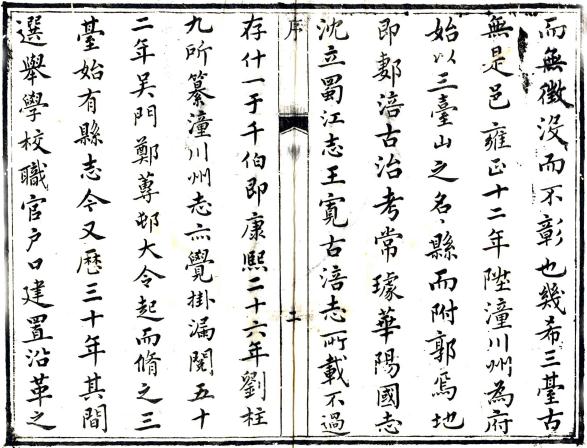 而無徵沒而不彰也幾希三臺古
無是邑雍正十二年陞潼川州為府
始以三臺山之名名縣而附郭焉地
即郪涪古治考常璩華陽國志
沈立蜀江志王寬古涪志所載不過
序
二
存什一于千伯即康熙二十六年劉柱
九所纂潼川州志亦覺掛漏閱五十
二年吳門鄭蓴邨大令起而脩之三
臺始有縣志今又歷三十年其間
選舉學校職官戶口建置沿革之